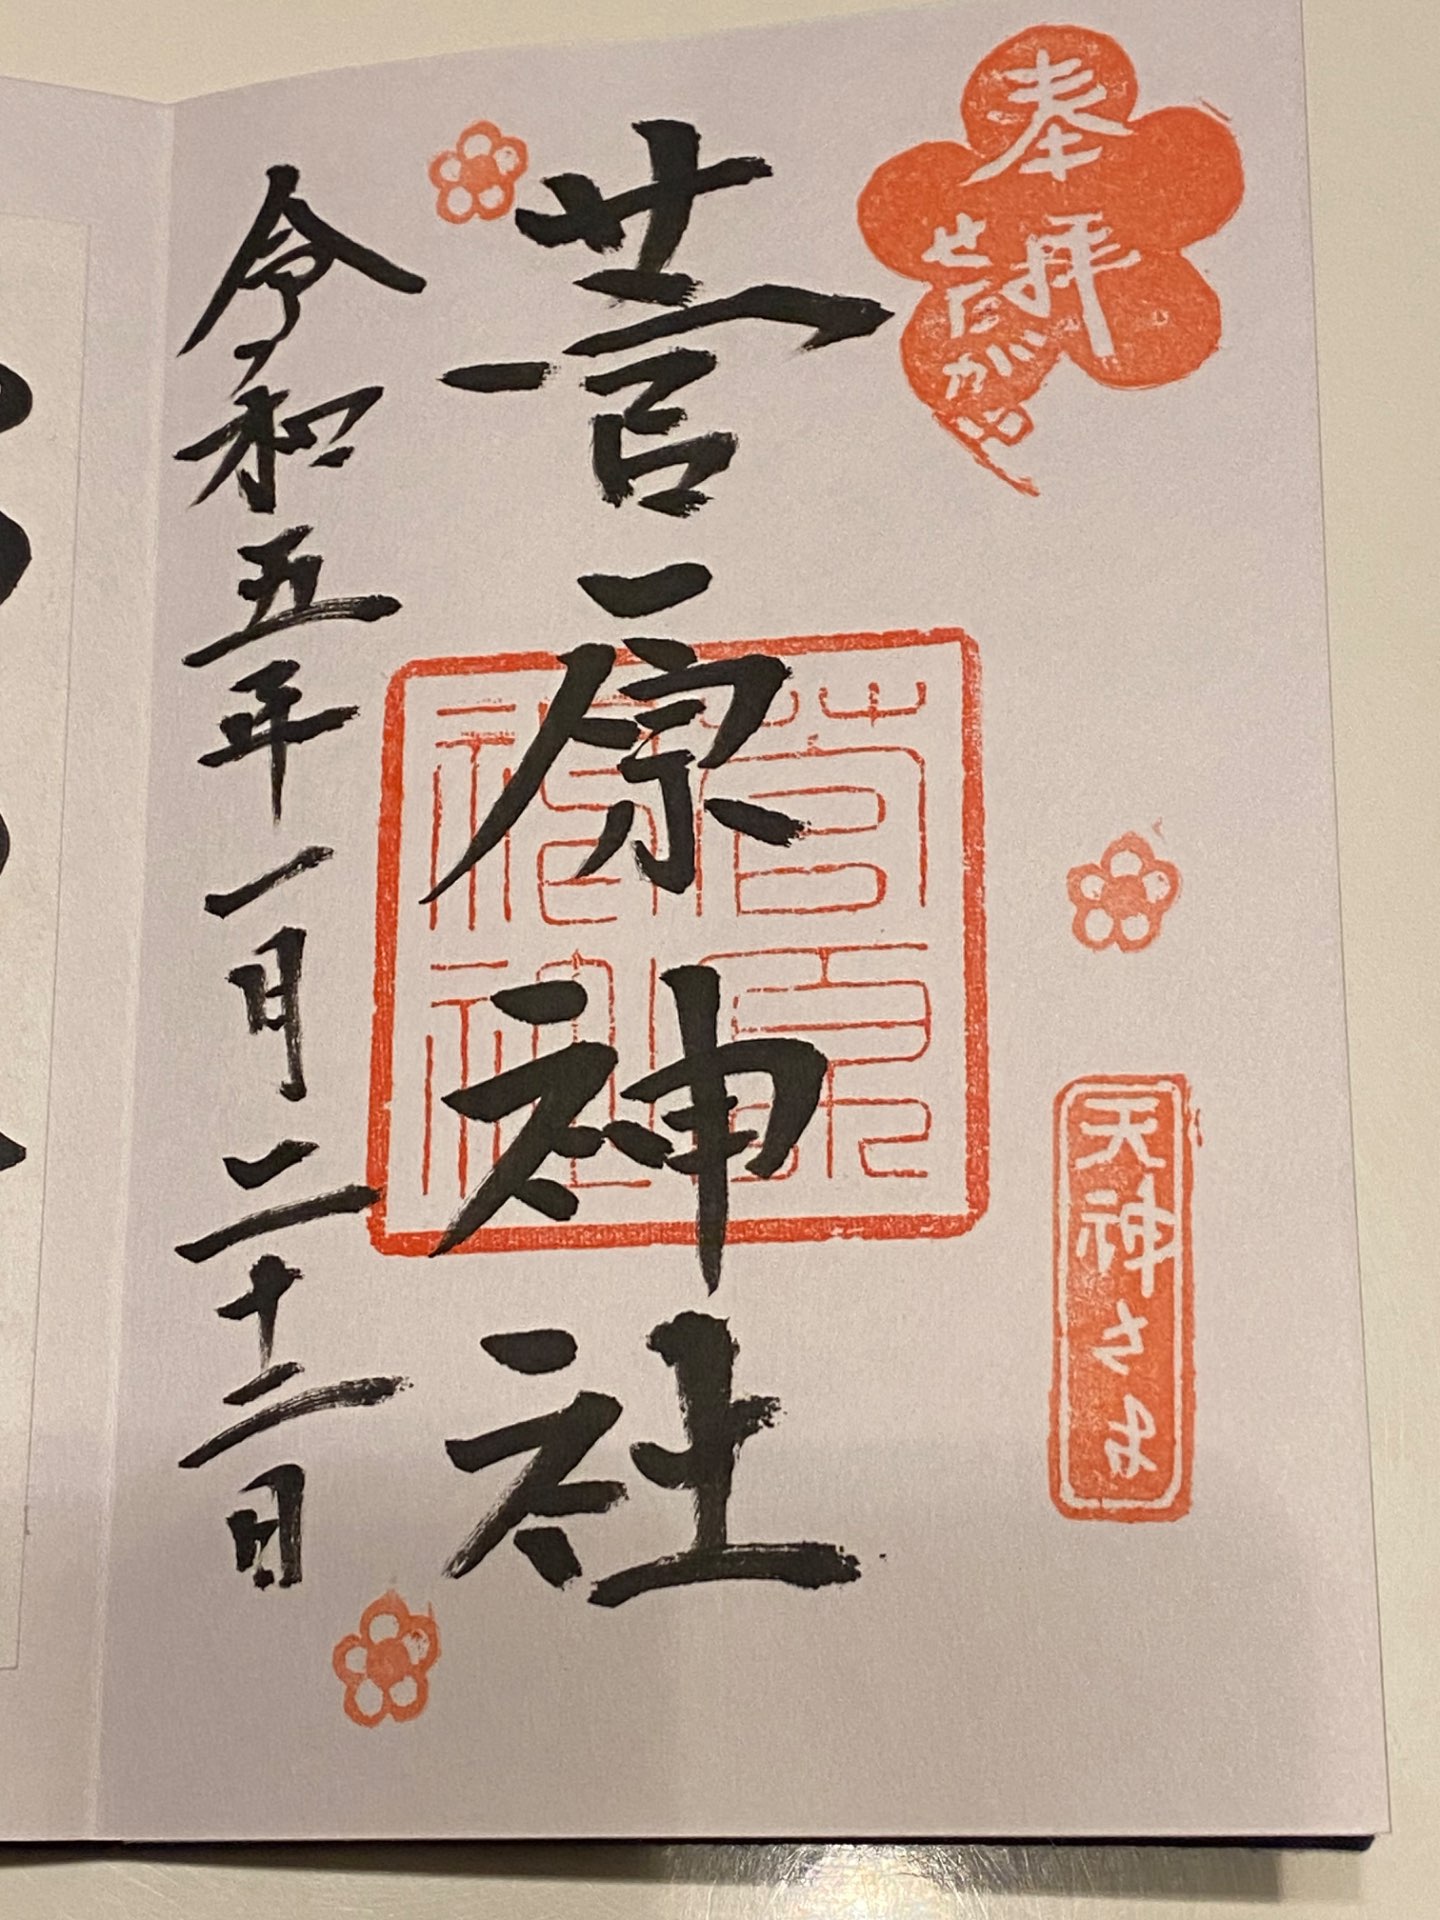 奉拝
せたがや
天神さま
菅原神社
菅原
神社
令和五年一月二十二日